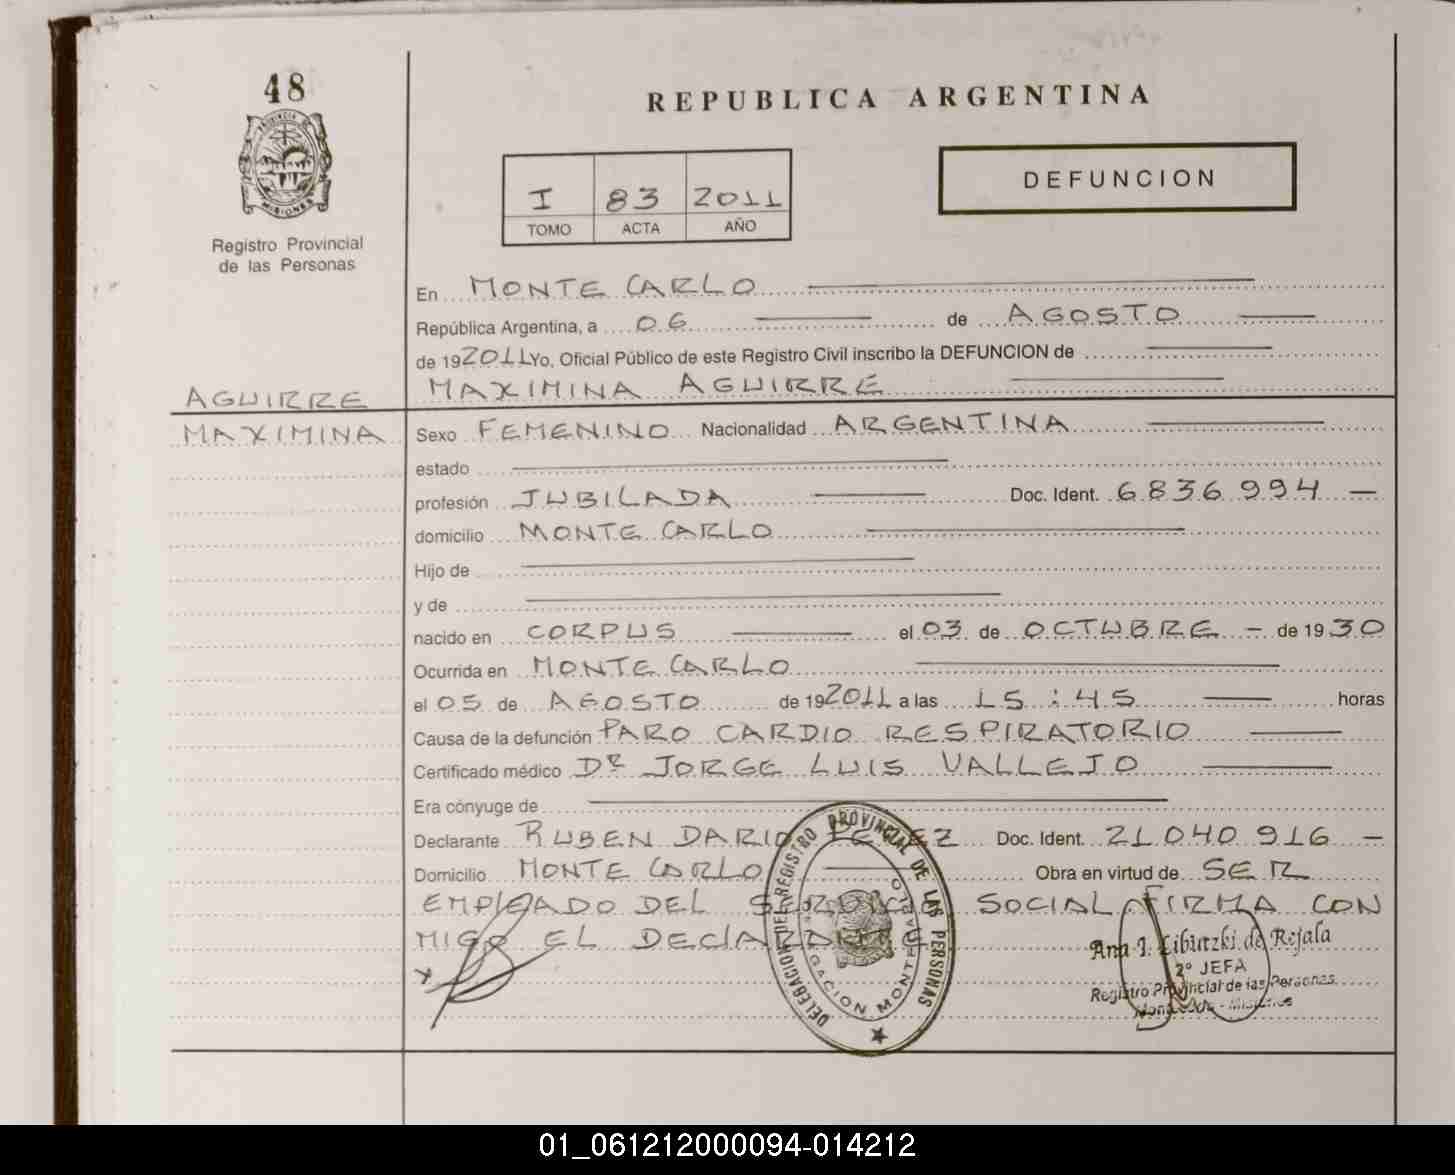 48
PROVINCIA DE
MISIONES
Registro Provincial
de las Personas
REPUBLICA ARGENTINA
I 83 2011
TOMO ACTA AÑO
DEFUNCION
En MONTE CARLO
República Argentina, a 06 de AGOSTO
de 192011 Yo, Oficial Público de este Registro Civil inscribo la DEFUNCION de
MAXIMINA AGUIRRE
AGUIRRE
MAXIMINA
Sexo FEMENINO Nacionalidad ARGENTINA
estado
profesión JUBILADA Doc. Ident. 6836994
domicilio MONTE CARLO
Hijo de
y de
nacido en CORPUS el 03 de OCTUBRE - de 1930
Ocurrida en MONTE CARLO
el 05 de AGOSTO de 192011 a las 15:45 horas
Causa de la defunción PARO CARDIO RESPIRATORIO
Certificado médico DR JORGE LUIS VALLEJO
Era cónyuge de
Declarante RUBEN DARIO Doc. Ident. 21040916 -
Domicilio MONTE CARLO Obra en virtud de SER
EMPLEADO DEL SERVICIO SOCIAL FIRMA CON
MIGO EL DEClARANTE
DELEGACION DEL REGISTRO PROVINCIAL DE LAS PERSONAS
DELEGACION MONTECARLO
Ana I. Libutzki de Rejala
2º JEFA
Registro Provincial de las Personas
Montecarlo - Misiones
01_061212000094-014212